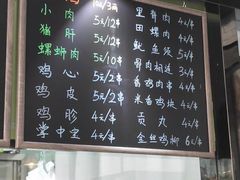 小肉 5元/12串
猪肝 5元/12串
螺蛳肉 5元/12串
鸡心 5元/2串
鸡皮 5元/2串
鸡胗 4元/串
掌中宝 4元/串
里脊肉 4元/串
田螺肉 4元/串
鱿鱼须 5元/串
骨肉相连 3元/串
香鸡肉串 5元/2串
米香鸡块 4元/串
贡丸 4元/串
金丝鸡柳 6元/串